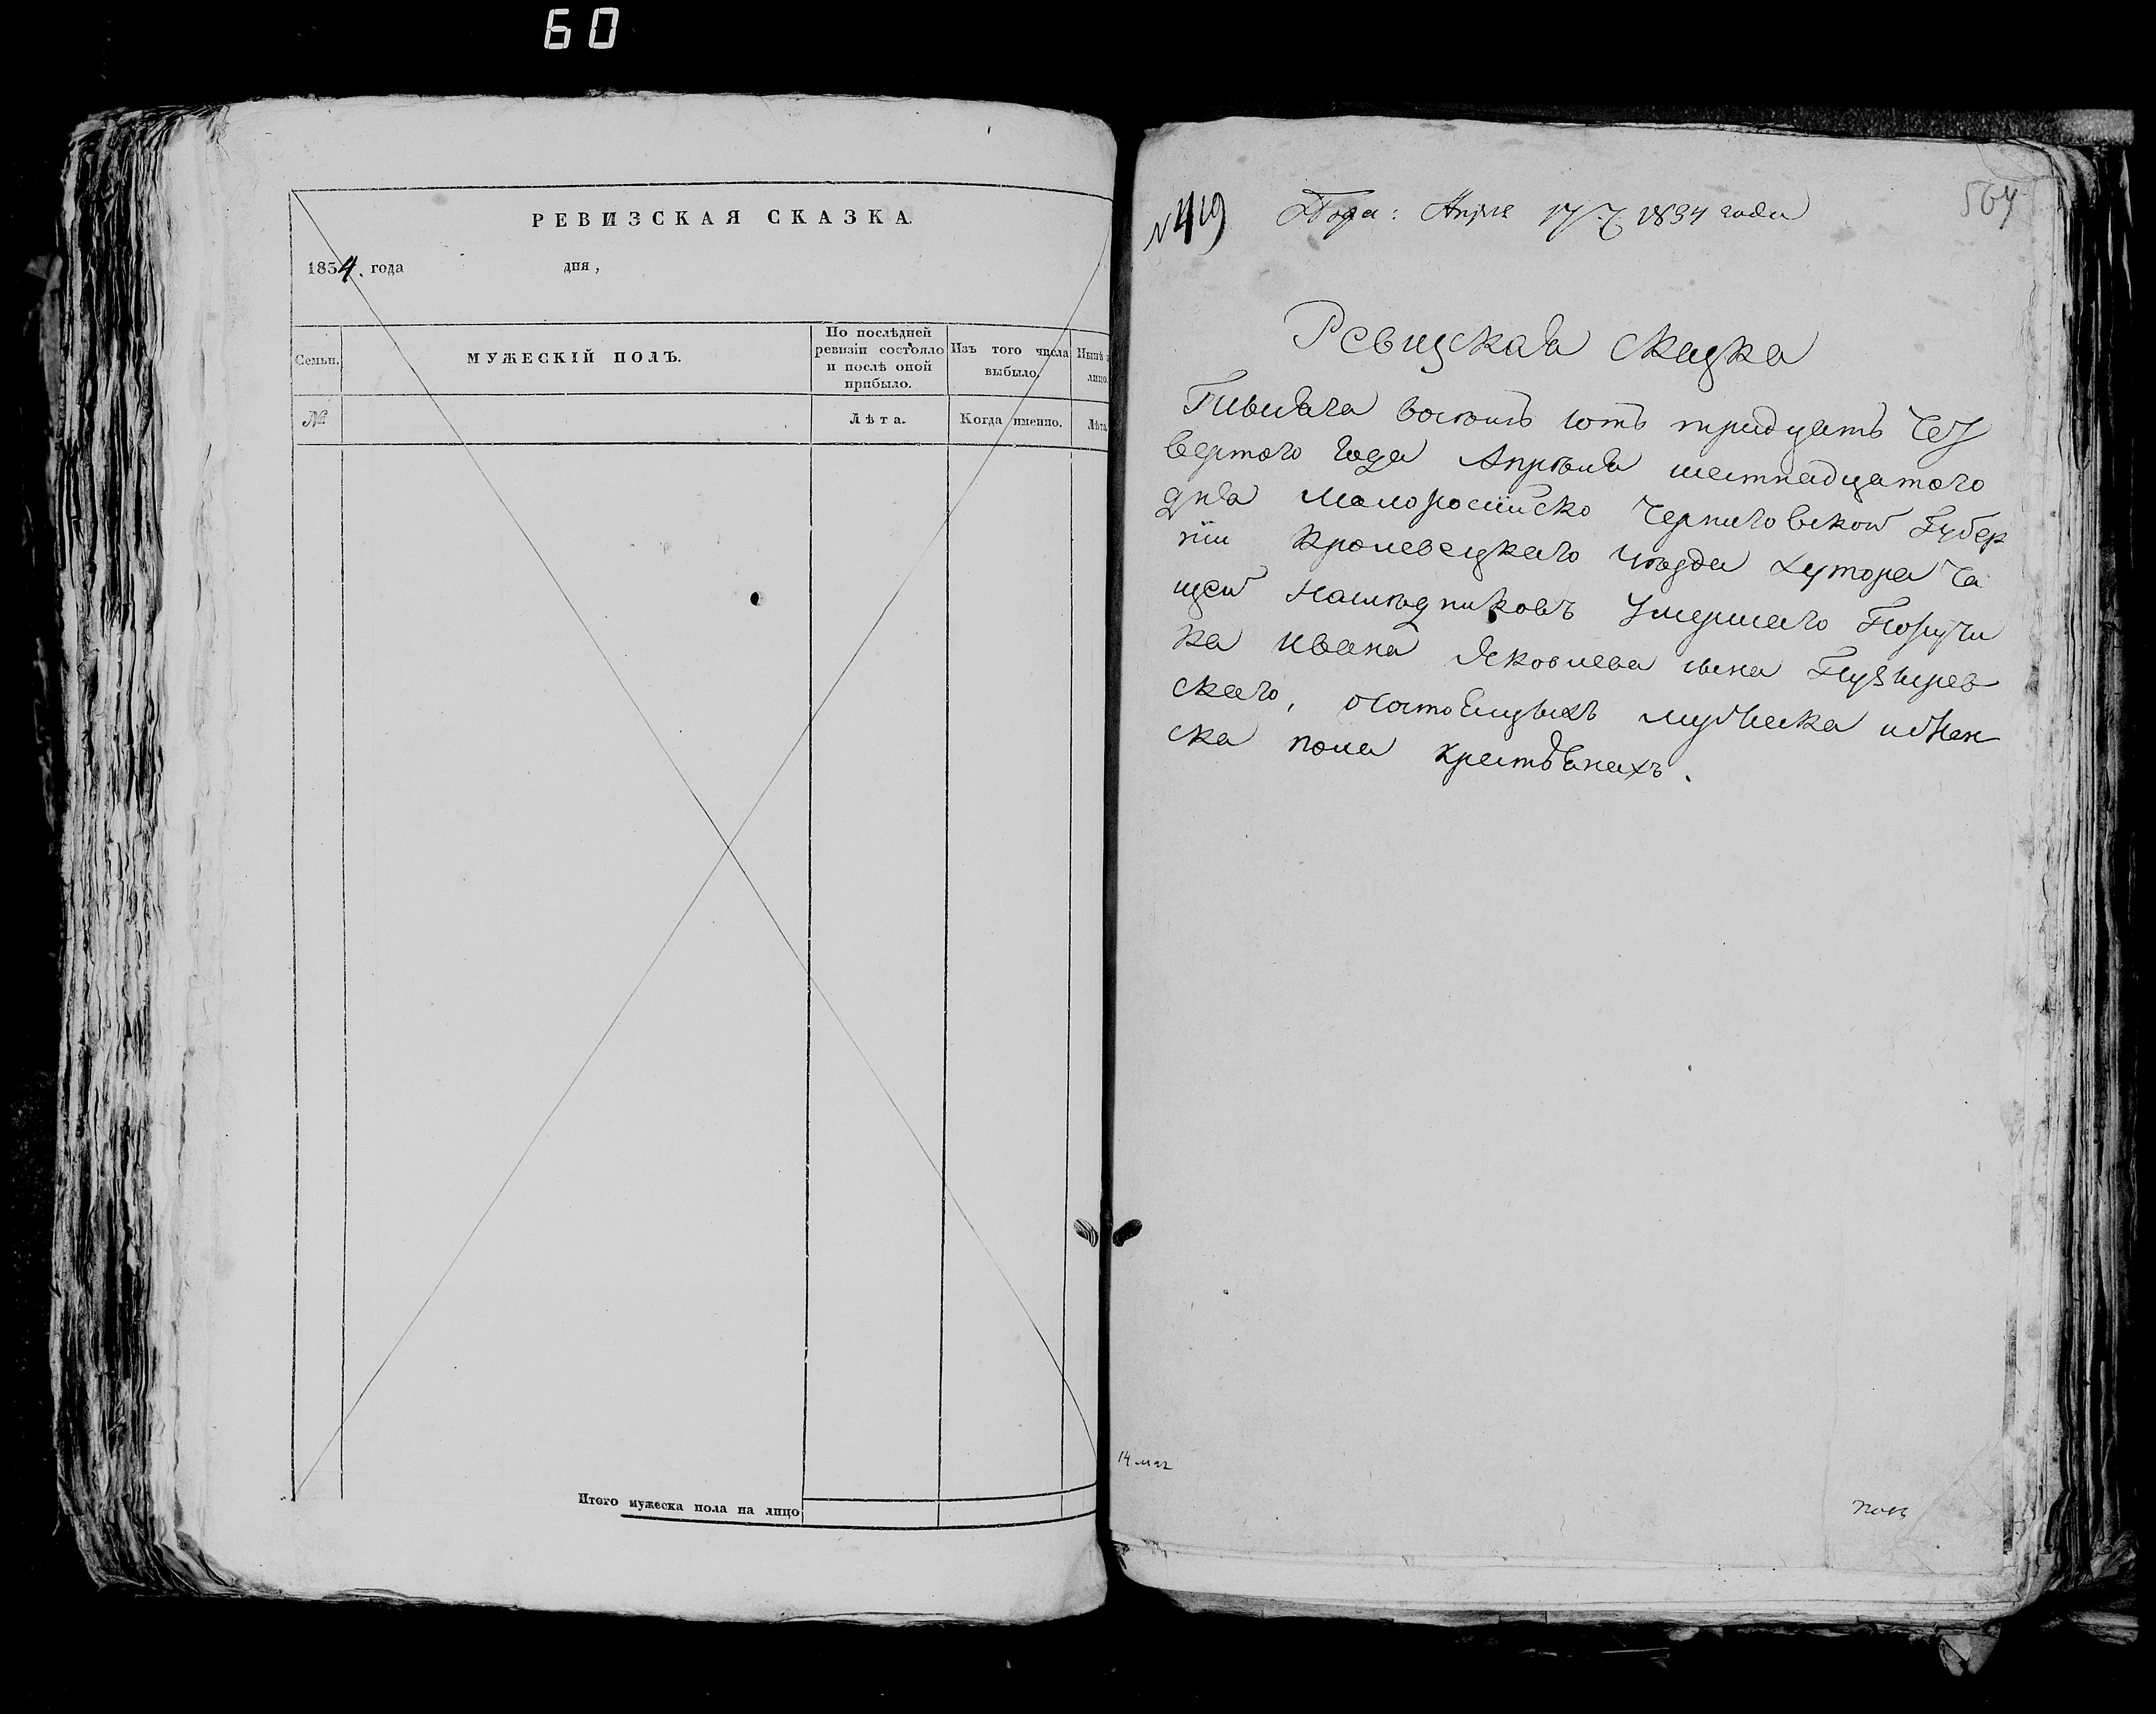 60
РЕВИЗСКАЯ СКАЗКА.
1834. года дня,
Семьи.
МУЖЕСКІЙ ПОЛЪ.
По послѣдней
ревизіи состояло
и послѣ оной
прибыло.
Изъ того числа
выбыло.
Нынѣ
лицо.
№
Лѣта.
Когда именно.
Лѣта
Итого мужеска пола на лицо
№ 419
Апреля 17 1834 года
564
Ревизская Скаска
Тисяча восемъ сотъ тридцать чет
вертого года Апрѣля шестнадцатого
дня Малоросийско Черниговской Губер
ніи Кролевецкаго уѣзда Хутора Ча
щей Наслѣдниковъ Умершаго Поручи
ка Ивана Яковлева сына Пузырев
скаго, о состоящихъ мужеска и жен
ска пола крестьянахъ.